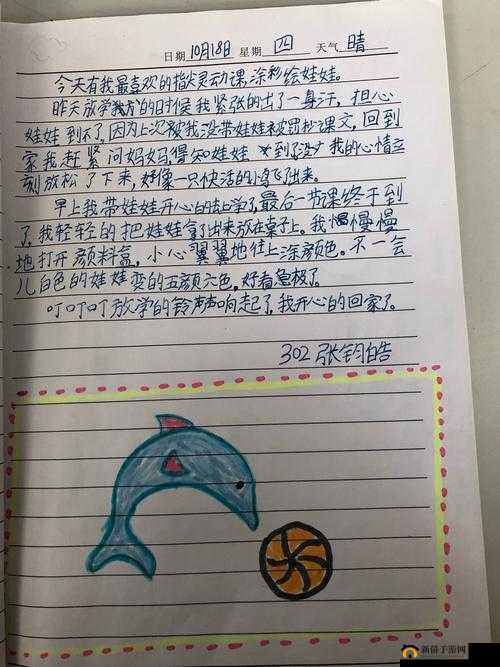 日期 10月18日 星期 四 天气 晴
今天有我最喜欢的指尖灵动课,涂彩绘娃娃。
昨天放学的时候我紧张的出了一身汗,担心
娃娃到不了,因为上次被我没带娃娃被罚抄课文,回到
家我赶紧问妈妈,得知娃娃到了我的心情立
刻放松了下来,好像一只快活的小鸟飞了出来。
早上我带娃娃开心的去上学了,最后一节课终于到
了,我轻轻的把娃娃拿了出来放在桌子上。我慢慢
地打开颜料盒,小心翼翼地往上涂颜色。不一会
儿白色的娃娃变的五颜六色,好看急极了。
叮叮叮放学的铃声响起了,我开心的回家了。
302 张钧皓
新锦手游网